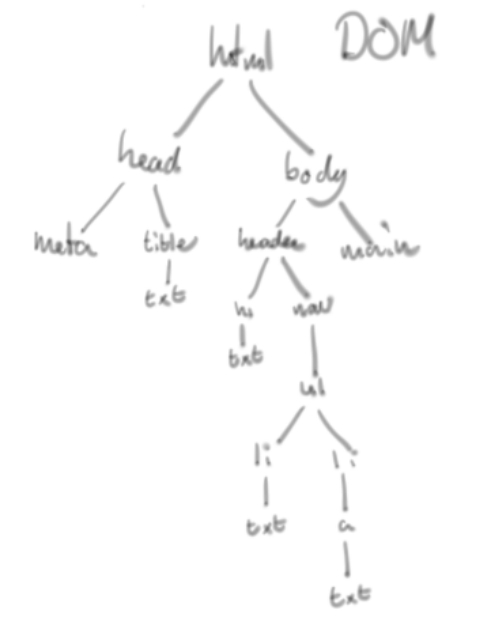 DOM
html
head body
meta title header main
txt h1 nav
txt
ul
li li
txt a
txt